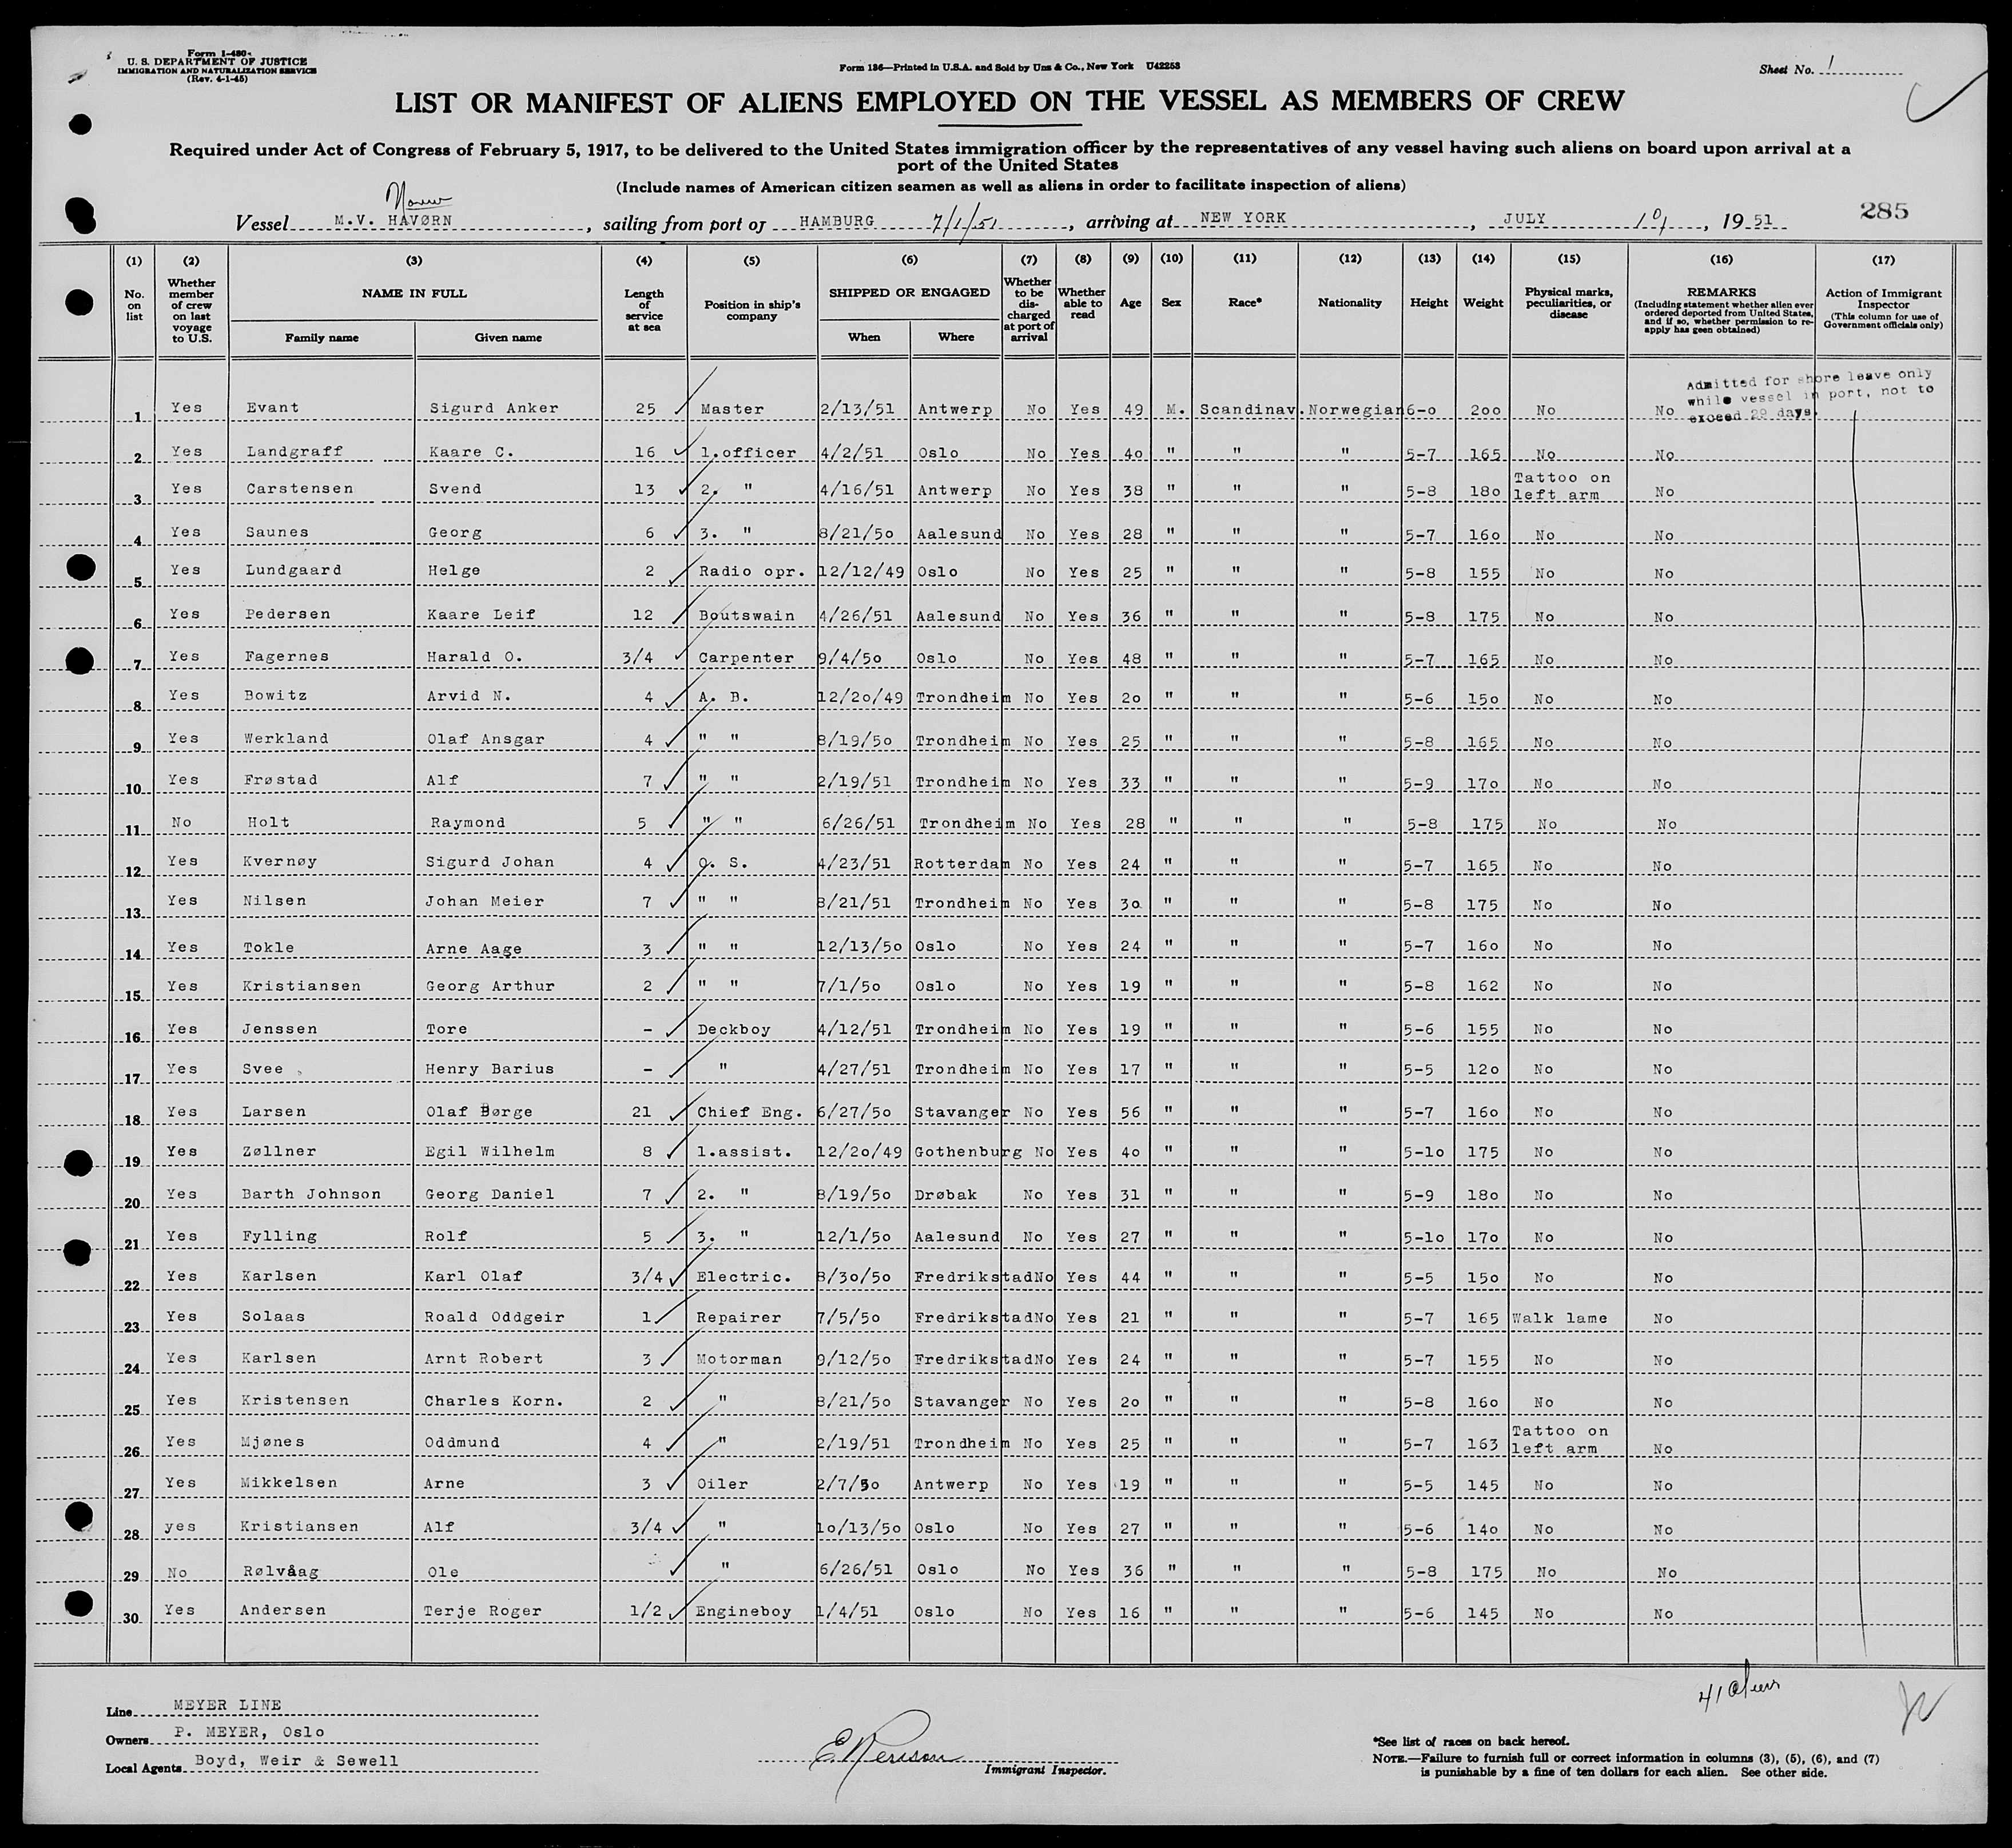 Form I-480
U. S. DEPARTMENT OF JUSTICE
IMMIGRATION AND NATURALIZATION SERVICE
(Rev. 4-1-45)
Form 136—Printed in U.S.A. and Sold by Unz & Co., New York U42253
Sheet No. 1
LIST OR MANIFEST OF ALIENS EMPLOYED ON THE VESSEL AS MEMBERS OF CREW
Required under Act of Congress of February 5, 1917, to be delivered to the United States immigration officer by the representatives of any vessel having such aliens on board upon arrival at a
port of the United States
(Include names of American citizen seamen as well as aliens in order to facilitate inspection of aliens)
Vessel M.V. HAVØRN, sailing from port of HAMBURG 7/1/51, arriving at NEW YORK, JULY 10, 1951
285
(1) (2) (3) (4) (5) (6) (7) (8) (9) (10) (11) (12) (13) (14) (15) (16) (17)
No. on list
Whether member of crew on last voyage to U.S.
NAME IN FULL
Family name Given name
Length of service at sea
Position in ship's company
SHIPPED OR ENGAGED
When Where
Whether to be discharged at port of arrival
Whether able to read
Age Sex Race* Nationality Height Weight
Physical marks, peculiarities, or disease
REMARKS
(Including statement whether alien ever ordered deported from United States, and if so, whether permission to re-apply has geen obtained)
Action of Immigrant Inspector
(This column for use of Government officials only)
Admitted for shore leave only
while vessel in port, not to
exceed 29 days.
1 Yes Evant Sigurd Anker 25 Master 2/13/51 Antwerp No Yes 49 M. Scandinav. Norwegian 6-0 200 No No
2 Yes Landgraff Kaare C. 16 1.officer 4/2/51 Oslo No Yes 40 " " " 5-7 165 No No
3 Yes Carstensen Svend 13 2. " 4/16/51 Antwerp No Yes 38 " " " 5-8 180 Tattoo on left arm No
4 Yes Saunes Georg 6 3. " 8/21/50 Aalesund No Yes 28 " " " 5-7 160 No No
5 Yes Lundgaard Helge 2 Radio opr. 12/12/49 Oslo No Yes 25 " " " 5-8 155 No No
6 Yes Pedersen Kaare Leif 12 Boutswain 4/26/51 Aalesund No Yes 36 " " " 5-8 175 No No
7 Yes Fagernes Harald O. 3/4 Carpenter 9/4/50 Oslo No Yes 48 " " " 5-7 165 No No
8 Yes Bowitz Arvid N. 4 A. B. 12/20/49 Trondheim No Yes 20 " " " 5-6 150 No No
9 Yes Werkland Olaf Ansgar 4 " " 8/19/50 Trondheim No Yes 25 " " " 5-8 165 No No
10 Yes Frøstad Alf 7 " " 2/19/51 Trondheim No Yes 33 " " " 5-9 170 No No
11 No Holt Raymond 5 " " 6/26/51 Trondheim No Yes 28 " " " 5-8 175 No No
12 Yes Kvernøy Sigurd Johan 4 O. S. 4/23/51 Rotterdam No Yes 24 " " " 5-7 165 No No
13 Yes Nilsen Johan Meier 7 " " 8/21/51 Trondheim No Yes 30 " " " 5-8 175 No No
14 Yes Tokle Arne Aage 3 " " 12/13/50 Oslo No Yes 24 " " " 5-7 160 No No
15 Yes Kristiansen Georg Arthur 2 " " 7/1/50 Oslo No Yes 19 " " " 5-8 162 No No
16 Yes Jenssen Tore - Deckboy 4/12/51 Trondheim No Yes 19 " " " 5-6 155 No No
17 Yes Svee Henry Barius - " 4/27/51 Trondheim No Yes 17 " " " 5-5 120 No No
18 Yes Larsen Olaf Børge 21 Chief Eng. 6/27/50 Stavanger No Yes 56 " " " 5-7 160 No No
19 Yes Zøllner Egil Wilhelm 8 1.assist. 12/20/49 Gothenburg No Yes 40 " " " 5-10 175 No No
20 Yes Barth Johnson Georg Daniel 7 2. " 8/19/50 Drøbak No Yes 31 " " " 5-9 180 No No
21 Yes Fylling Rolf 5 3. " 12/1/50 Aalesund No Yes 27 " " " 5-10 170 No No
22 Yes Karlsen Karl Olaf 3/4 Electric. 8/30/50 Fredrikstad No Yes 44 " " " 5-5 150 No No
23 Yes Solaas Roald Oddgeir 1 Repairer 7/5/50 Fredrikstad No Yes 21 " " " 5-7 165 Walk lame No
24 Yes Karlsen Arnt Robert 3 Motorman 9/12/50 Fredrikstad No Yes 24 " " " 5-7 155 No No
25 Yes Kristensen Charles Korn. 2 " 8/21/50 Stavanger No Yes 20 " " " 5-8 160 No No
26 Yes Mjønes Oddmund 4 " 2/19/51 Trondheim No Yes 25 " " " 5-7 163 Tattoo on left arm No
27 Yes Mikkelsen Arne 3 Oiler 2/7/50 Antwerp No Yes 19 " " " 5-5 145 No No
28 yes Kristiansen Alf 3/4 " 10/13/50 Oslo No Yes 27 " " " 5-6 140 No No
29 No Rølvåag Ole " 6/26/51 Oslo No Yes 36 " " " 5-8 175 No No
30 Yes Andersen Terje Roger 1/2 Engineboy 1/4/51 Oslo No Yes 16 " " " 5-6 145 No No
41 Aliens
Line MEYER LINE
Owners P. MEYER, Oslo
Local Agents Boyd, Weir & Sewell
Immigrant Inspector.
*See list of races on back hereof.
NOTE.—Failure to furnish full or correct information in columns (3), (5), (6), and (7)
is punishable by a fine of ten dollars for each alien. See other side.